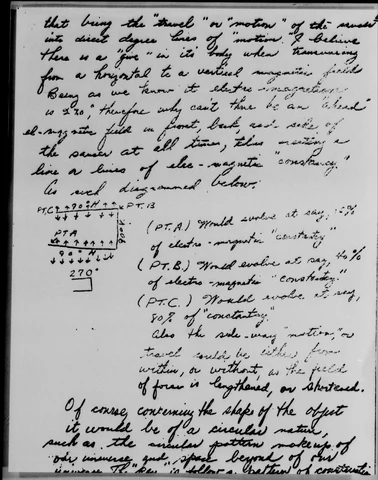 that being the "travel" or "motion" of the saucer
into direct degree lines of "motion". I believe
there is a "give" in its body when transversing
from a horizontal to a vertical magnetic field.
Being as we know it electro-magnetism
is 270°, therefore why can't there be an "ahead"
el-magnetic field in front, back, and side, of
the saucer at all times, thus creating a
line or lines of elec-magnetic "constancy."
As such diagrammed below.
PT.C 90° N PT.B
PT.A
90° N
270°
(PT.A) Would evolve at say,
of electro-magnetic "constancy"
(PT.B.) Would evolve at say, 40%
of electro-magnetic "constancy"
(PT.C.) Would evolve at say,
80% of "constancy"
Also the side-way "motion," or
travel could be either from
within, or without, as the field
of force is lengthened, or shortened.
Of course, concerning the shape of the object
it would be of a circular nature,
such as the circular pattern makeup of
our universe and space beyond of our